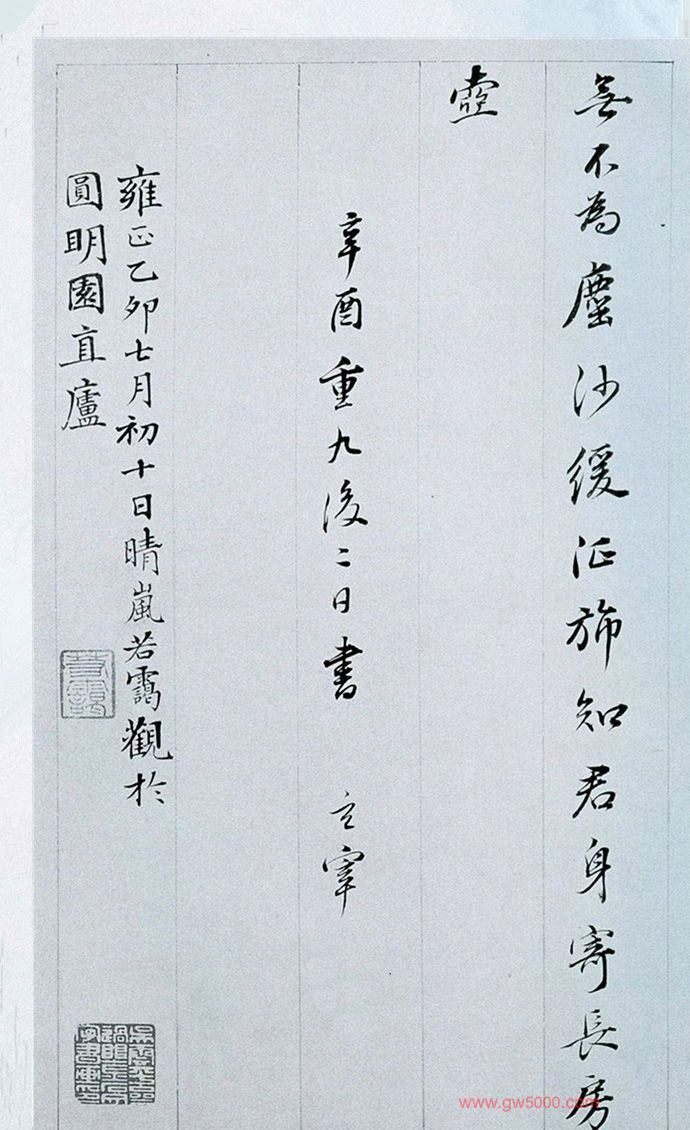 無不為塵沙緩征斾知君身寄長房
壺
辛酉重九後二日書 玄宰
雍正乙卯七月初十日晴嵐若靄觀於
圓明園直廬
若靄
www.gw5000.com